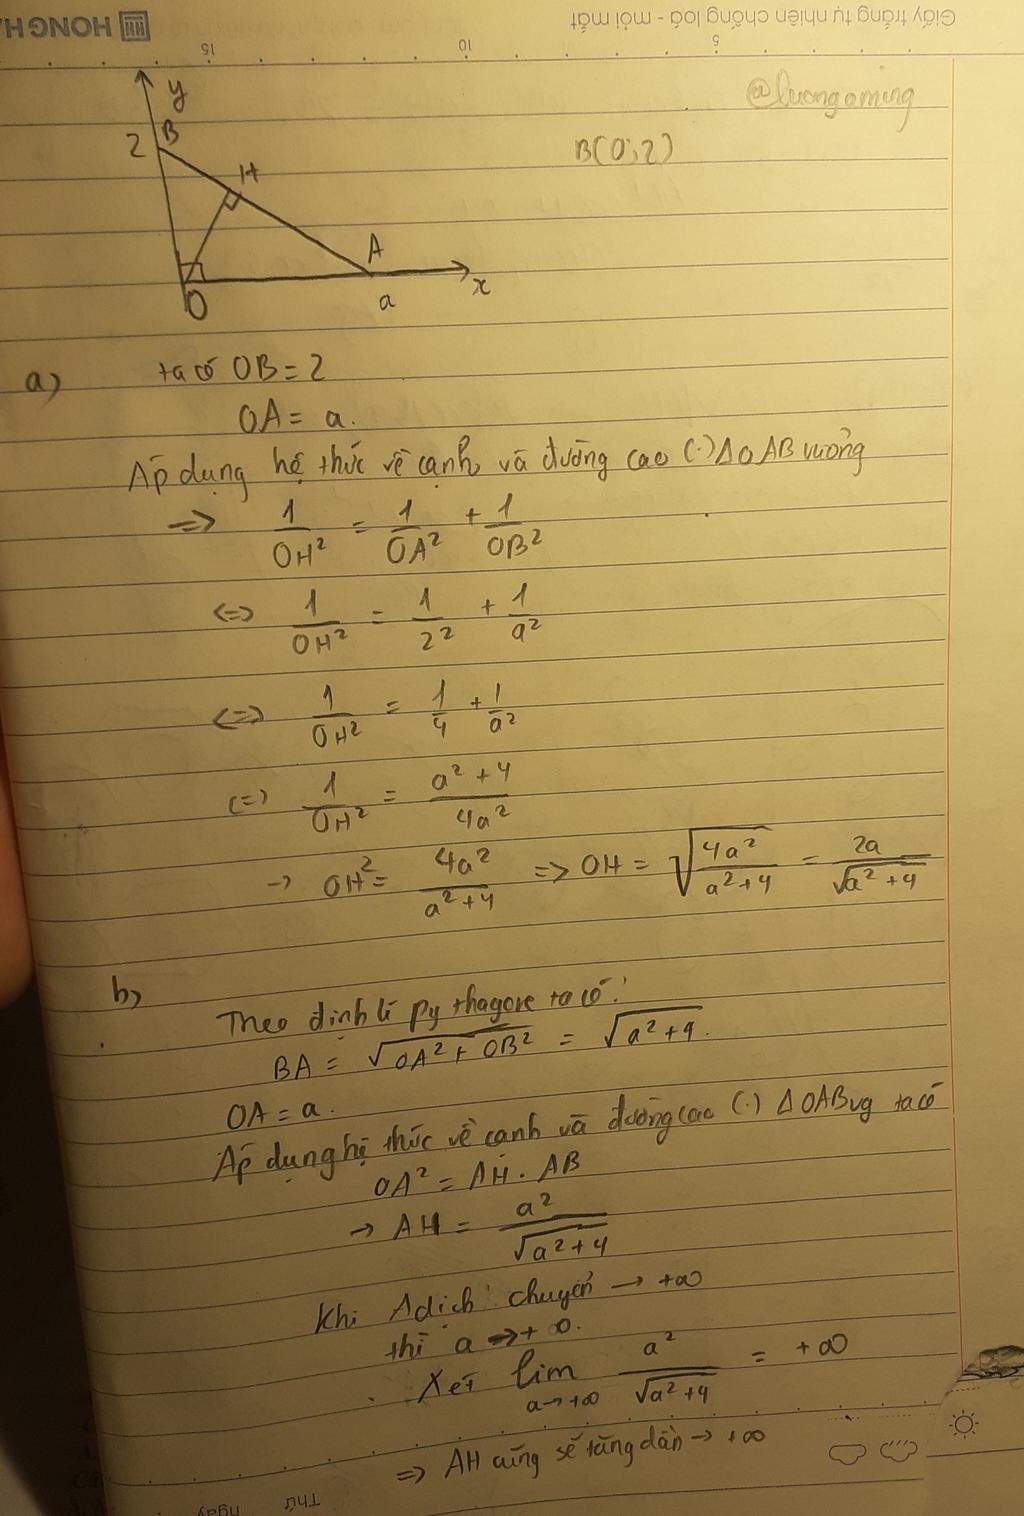 HONG HA
Giấy trắng tự nhiên chống loá - mỏi mắt
15 10 5
@luongaming
y
2 B
H
A
O
a
x
B(0;2)
a) ta có OB = 2
OA = a.
Áp dụng hệ thức về cạnh và đường cao (.) ΔOAB vuông
=> 1/OH² = 1/OA² + 1/OB²
<=> 1/OH² = 1/2² + 1/a²
<=> 1/OH² = 1/4 + 1/a²
(=) 1/OH² = (a² + 4)/4a²
-> OH² = 4a²/(a²+4) => OH = √(4a²/(a²+4)) = 2a/√(a²+4)
b)
Theo định lí Pythagore ta có:
BA = √(OA² + OB²) = √(a²+4).
OA = a.
Áp dụng hệ thức về cạnh và đường cao (.) ΔOAB vg ta có
OA² = AH . AB
-> AH = a²/√(a²+4)
Khi A dịch chuyển -> +∞
thì a -> +∞.
Xét lim a->+∞ a²/√(a²+4) = +∞
=> AH cũng sẽ tăng dần -> +∞
Thứ ngày